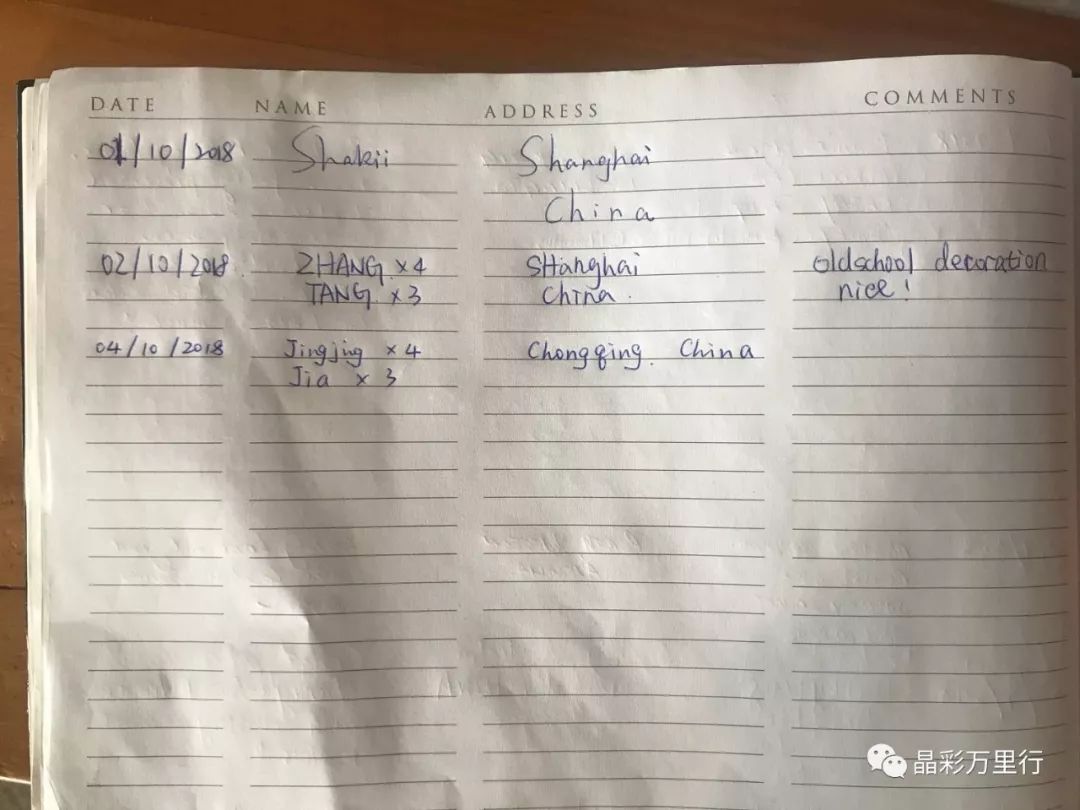 DATE NAME ADDRESS COMMENTS
01/10/2018 Shakii Shanghai
China
02/10/2018 ZHANG x4 SHanghai oldschool decoration
TANG x3 China. nice!
04/10/2018 Jingjing x4 Chongqing. China
Jia x3
晶彩万里行